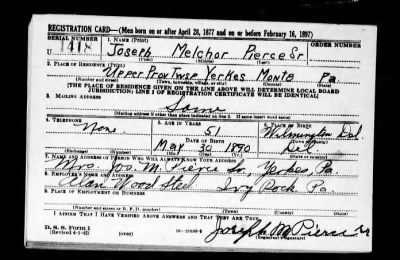 REGISTRATION CARD—(Men born on or after April 28, 1877 and on or before February 16, 1897)
SERIAL NUMBER 1. NAME (Print) ORDER NUMBER
U 1418 Joseph Melchor Pierce Sr
(First) (Middle) (Last)
2. PLACE OF RESIDENCE (Print)
Upper Prov Twsp Yerkes Montg Pa.
(Number and street) (Town, township, village, or city) (County) (State)
[THE PLACE OF RESIDENCE GIVEN ON THE LINE ABOVE WILL DETERMINE LOCAL BOARD
JURISDICTION; LINE 2 OF REGISTRATION CERTIFICATE WILL BE IDENTICAL]
3. MAILING ADDRESS
Same
[Mailing address if other than place indicated on line 2. If same insert word same]
4. TELEPHONE 5. AGE IN YEARS 6. PLACE OF BIRTH
None 51 Wilmington Del
DATE OF BIRTH
May 30 1890 Del
(Mo.) (Day) (Yr.)
7. NAME AND ADDRESS OF PERSON WHO WILL ALWAYS KNOW YOUR ADDRESS
Mrs. Jos. M. Pierce Sr, Yerkes, Pa.
8. EMPLOYER'S NAME AND ADDRESS
Alan Wood Steel Ivy Rock, Pa.
9. PLACE OF EMPLOYMENT OR BUSINESS
(Number and street or R. F. D. number) (Town) (County) (State)
I AFFIRM THAT I HAVE VERIFIED ABOVE ANSWERS AND THAT THEY ARE TRUE.
D. S. S. Form 1
(Revised 4-1-42) (over) Joseph M Pierce Sr
(Registrant's signature)